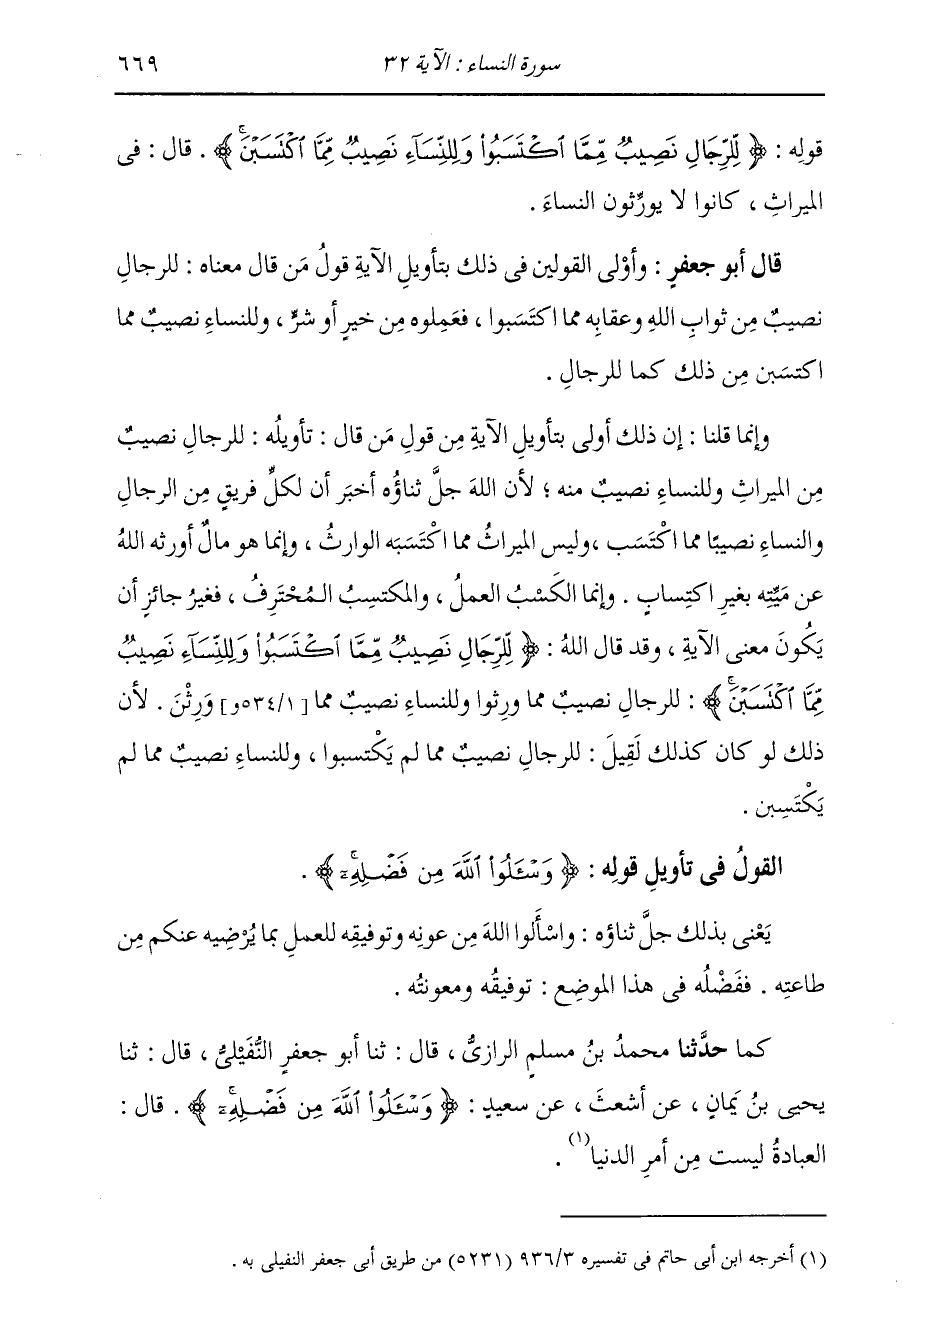 سورة النساء : الآية ٣٢ ٦٦٩
قولِه : ﴿ لِّلرِّجَالِ نَصِيبٌ مِّمَّا ٱكْتَسَبُوا۟ وَلِلنِّسَآءِ نَصِيبٌ مِّمَّا ٱكْتَسَبْنَۚ ﴾ . قال : فى
الميراثِ ، كانوا لا يورِّثون النساءَ .
قال أبو جعفرٍ : وأوْلى القولين فى ذلك بتأويلِ الآيةِ قولُ مَن قال معناه : للرجالِ
نصيبٌ مِن ثوابِ اللهِ وعقابِه مما اكتَسَبوا ، فعَمِلوه مِن خيرٍ أو شرٍّ ، وللنساءِ نصيبٌ مما
اكتسَبن مِن ذلك كما للرجالِ .
وإنما قلنا : إن ذلك أولى بتأويلِ الآيةِ مِن قولِ مَن قال : تأويلُه : للرجالِ نصيبٌ
مِن الميراثِ وللنساءِ نصيبٌ منه ؛ لأن اللهَ جلَّ ثناؤُه أخبَر أن لكلِّ فريقٍ مِن الرجالِ
والنساءِ نصيبًا مما اكْتَسَب ،وليس الميراثُ مما اكْتَسَبَه الوارثُ ، وإنما هو مالٌ أورثه اللهُ
عن مَيِّتِه بغيرِ اكتِسابٍ . وإنما الكَسْبُ العملُ ، والمكتسِبُ المُحْتَرِفُ ، فغيرُ جائزٍ أن
يَكُونَ معنى الآيةِ ، وقد قال اللهُ : ﴿ لِّلرِّجَالِ نَصِيبٌ مِّمَّا ٱكْتَسَبُوا۟ وَلِلنِّسَآءِ نَصِيبٌ
مِّمَّا ٱكْتَسَبْنَۚ ﴾ : للرجالِ نصيبٌ مما ورِثوا وللنساءِ نصيبٌ مما [٥٣٤/١و] وَرِثْنَ . لأن
ذلك لو كان كذلك لَقِيلَ : للرجالِ نصيبٌ مما لم يَكْتسبوا ، وللنساءِ نصيبٌ مما لم
يَكْتَسِبن .
القولُ فى تأويلِ قولِه : ﴿ وَسْـَٔلُوا۟ ٱللَّهَ مِن فَضْلِهِۦٓۚ ﴾ .
يَعْنى بذلك جلَّ ثناؤه : واسْأَلوا اللهَ مِن عونِه وتوفيقِه للعملِ بما يُرْضِيه عنكم مِن
طاعتِه . ففَضْلُه فى هذا الموضِعِ : توفيقُه ومعونتُه .
كما حدَّثنا محمدُ بنُ مسلمٍ الرازىُّ ، قال : ثنا أبو جعفرٍ النُّفَيْلىُّ ، قال : ثنا
يحيى بنُ يَمانٍ ، عن أشعثَ ، عن سعيدٍ : ﴿ وَسْـَٔلُوا۟ ٱللَّهَ مِن فَضْلِهِۦٓۚ ﴾ . قال :
العبادةُ ليست مِن أمرِ الدنيا(١) .
(١) أخرجه ابن أبى حاتم فى تفسيره ٩٣٦/٣ (٥٢٣١) من طريق أبى جعفر النفيلى به .